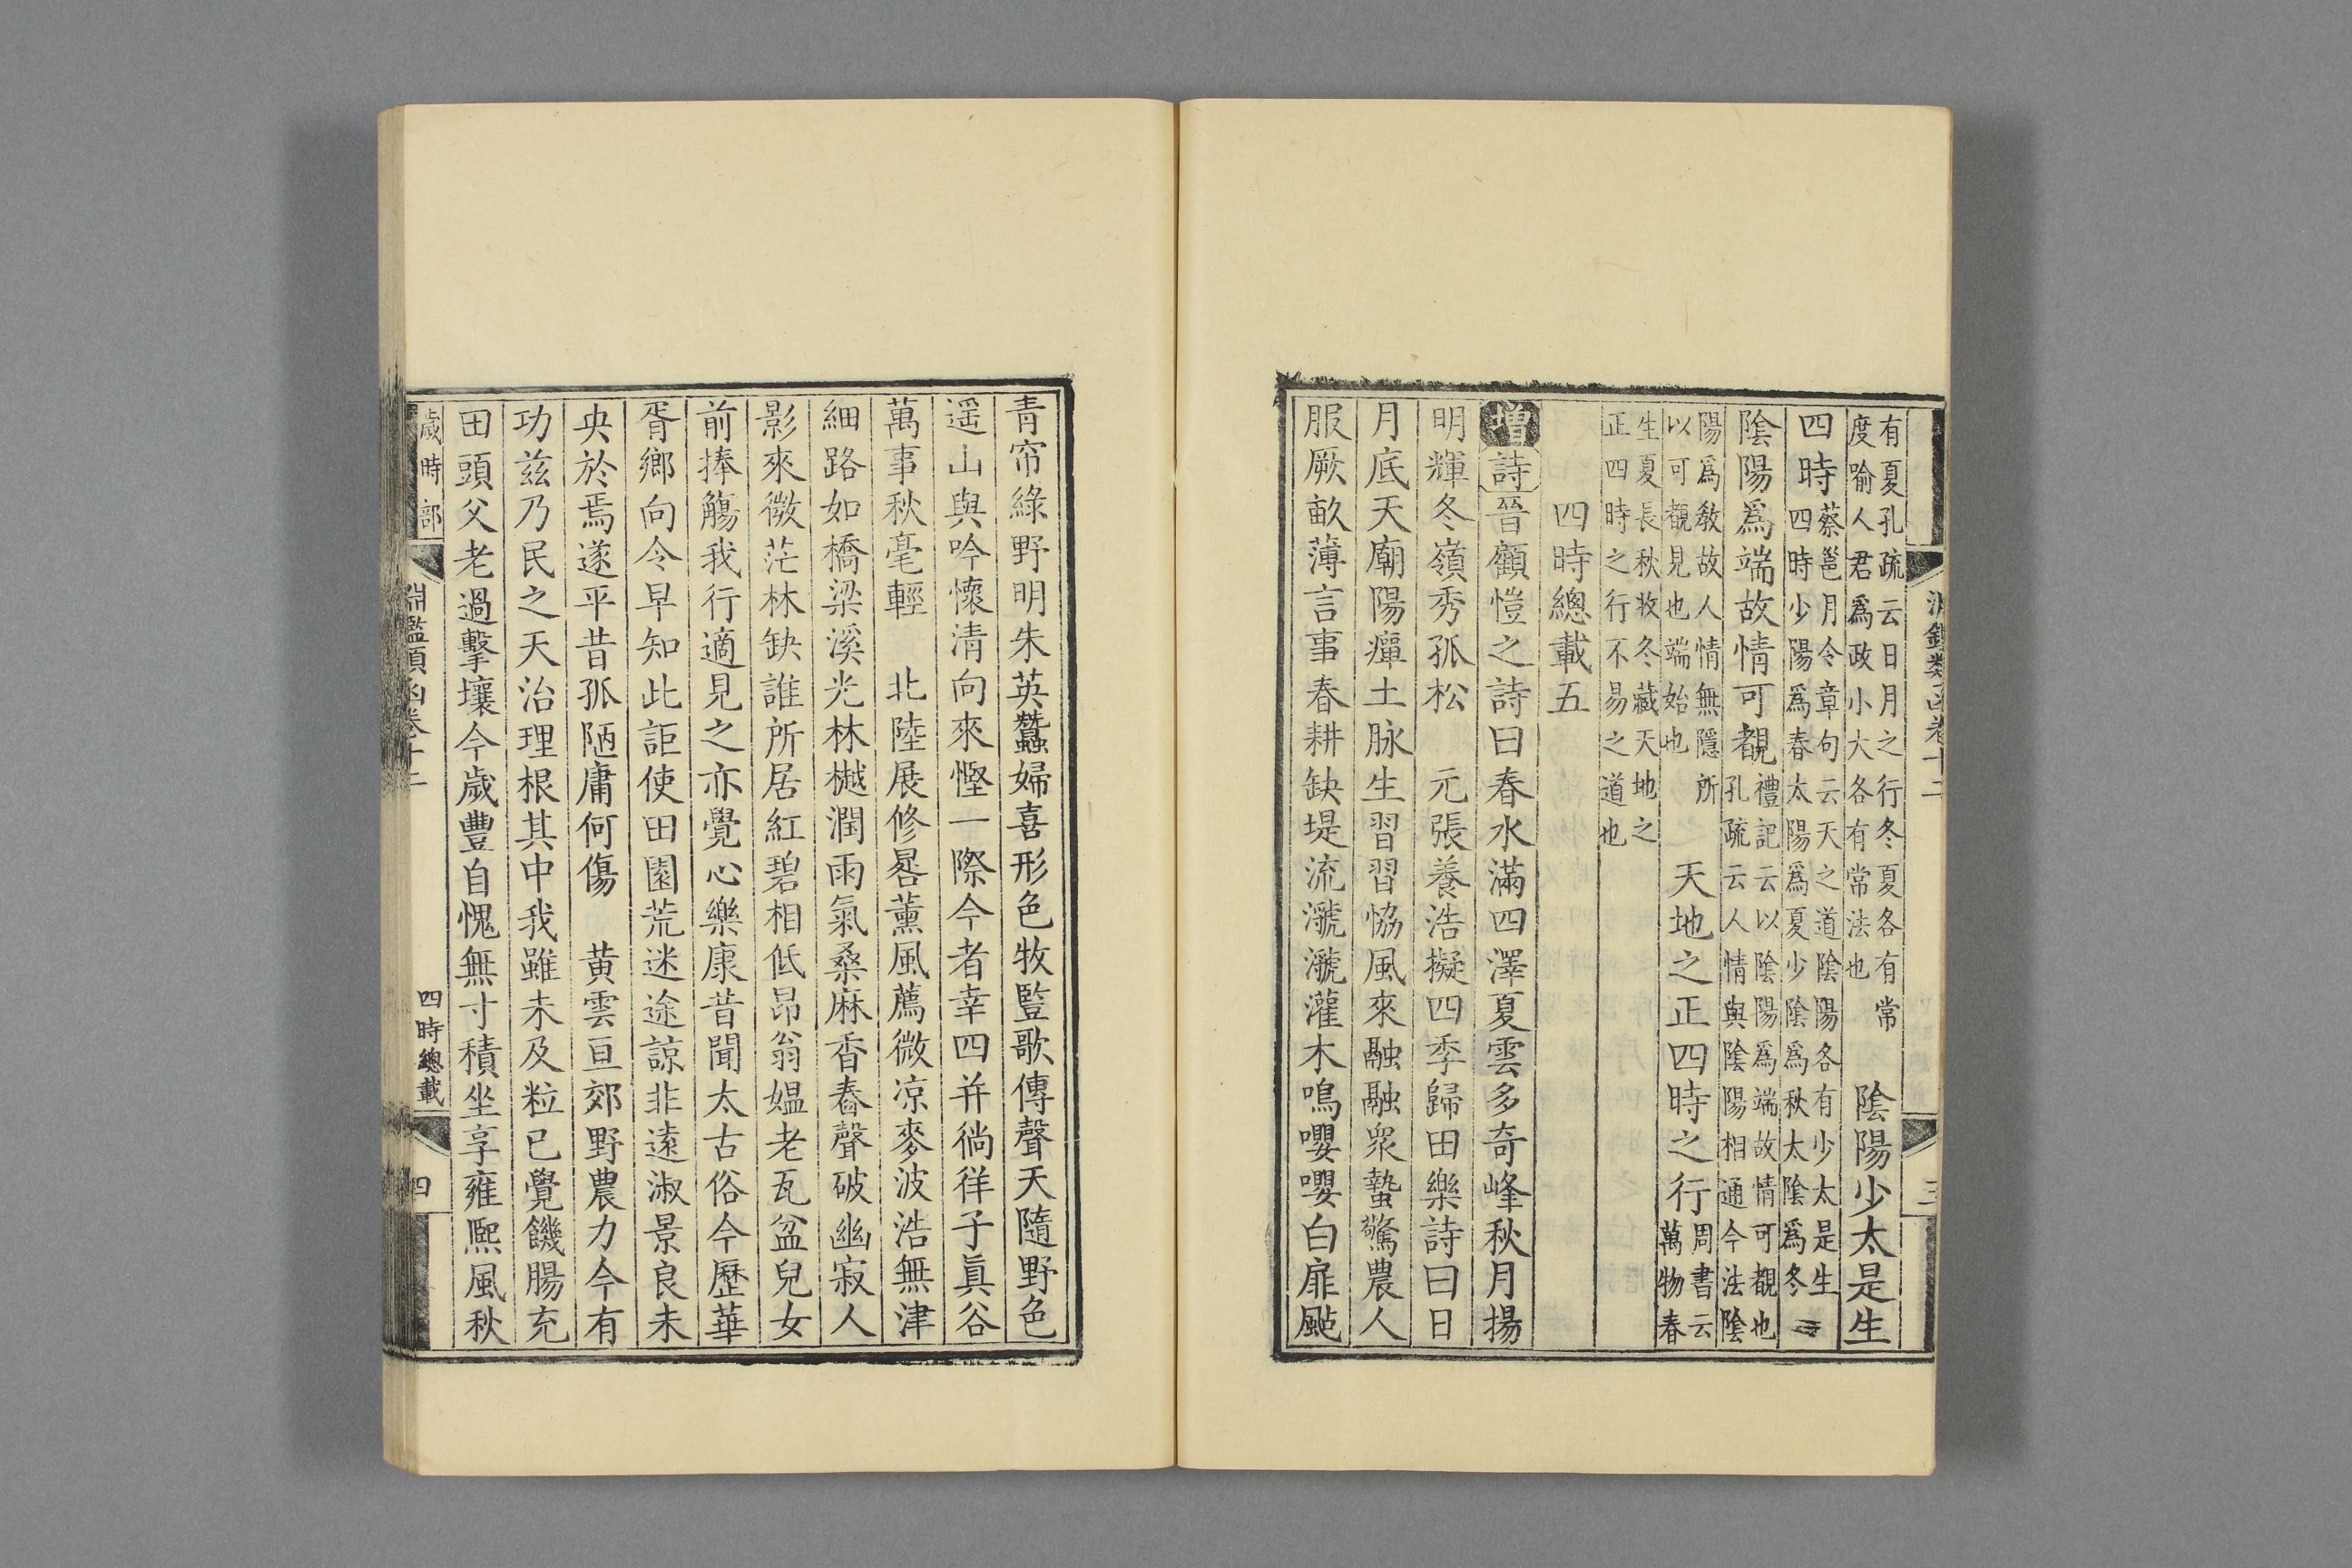 淵鑑類函卷十二
三
有夏孔疏云日月之行冬夏各有常
度喻人君爲政小大各有常法也
陰陽少太是生
四時
蔡邕月令章句云天之道陰陽各有少太是生
四時少陽爲春太陽爲夏少陰爲秋太陰爲冬
陰陽爲端故情可覩
禮記云以陰陽爲端故情可覩也
孔疏云人情與陰陽相通今法陰
陽爲敎故人情無隱所
以可覩見也端始也
天地之正四時之行
周書云
萬物春
生夏長秋收冬藏天地之
正四時之行不易之道也
四時總載五
增詩晉顧愷之詩曰春水滿四澤夏雲多奇峰秋月揚
明輝冬嶺秀孤松　元張養浩擬四季歸田樂詩曰日
月底天廟陽癉土脉生習習恊風來融融衆蟄驚農人
服厥畝薄言事春耕缺堤流㶁㶁灌木鳴嚶嚶白扉颭
青帘綠野明朱英蠶婦喜形色牧豎歌傳聲天隨野色
遥山與吟懷清向來慳一際今者幸四并徜徉子眞谷
萬事秋毫輕　北陸展修晷薰風薦微凉麥波浩無津
細路如橋梁溪光林樾潤雨氣桑麻香舂聲破幽寂人
影來微茫林缺誰所居紅碧相低昂翁媼老瓦盆兒女
前捧觴我行適見之亦覺心樂康昔聞太古俗今歷華
胥鄉向令早知此詎使田園荒迷途諒非遠淑景良未
央於焉遂平昔孤陋庸何傷　黄雲亘郊野農力今有
功兹乃民之天治理根其中我雖未及粒已覺饑腸充
田頭父老過擊壤今歲豐自愧無寸積坐享雍熙風秋
歲時部
淵鑑類函卷十二
四時總載
四